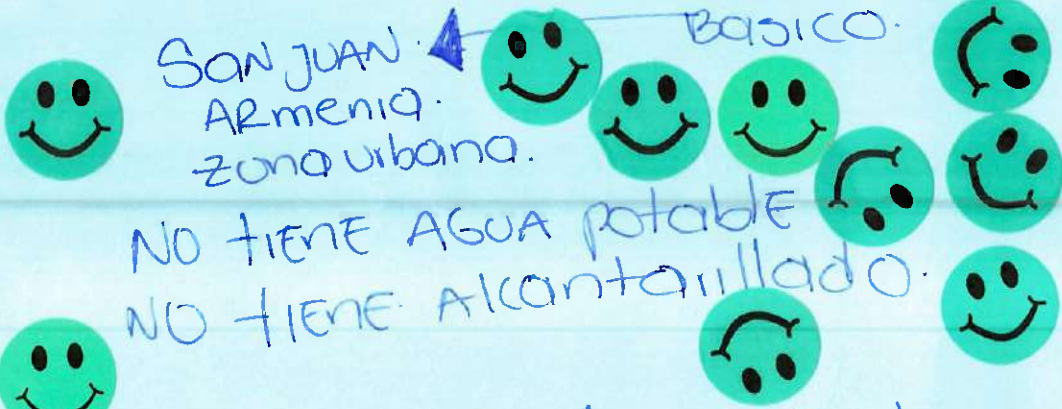 SAN JUAN. BASICO.
ARmenia.
zona urbana.
NO tIENE AGUA potablE
NO tIENE Alcantarillado.